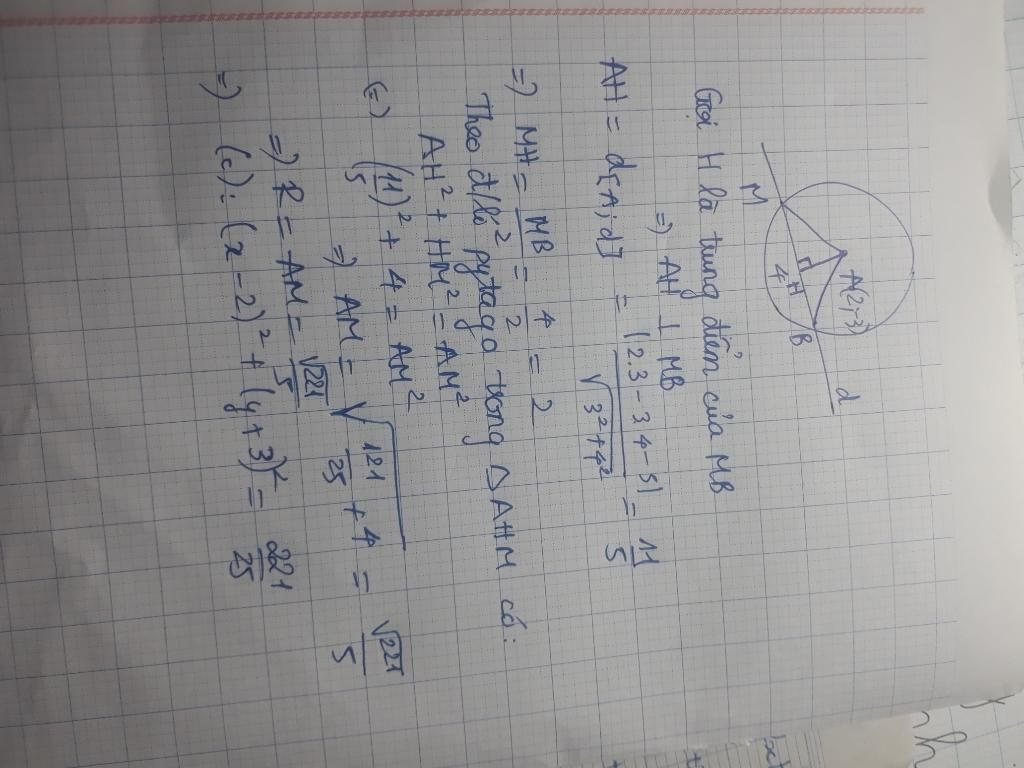 A(2;-3)
d
M
4
H
B
Gọi H là trung điểm của MB
=) AH ⊥ MB
AH = d[A;d] = |2.3-3.4-5| / √(3²+4²) = 11/5
=) MH = MB/2 = 4/2 = 2
Theo đ/lí pytago trong △ AHM có:
AH² + HM² = AM²
(=) (11/5)² + 4 = AM²
=) AM = √(121/25 + 4) = √221/5
=) R = AM = √221/5
=) (c): (x-2)² + (y+3)² = 221/25